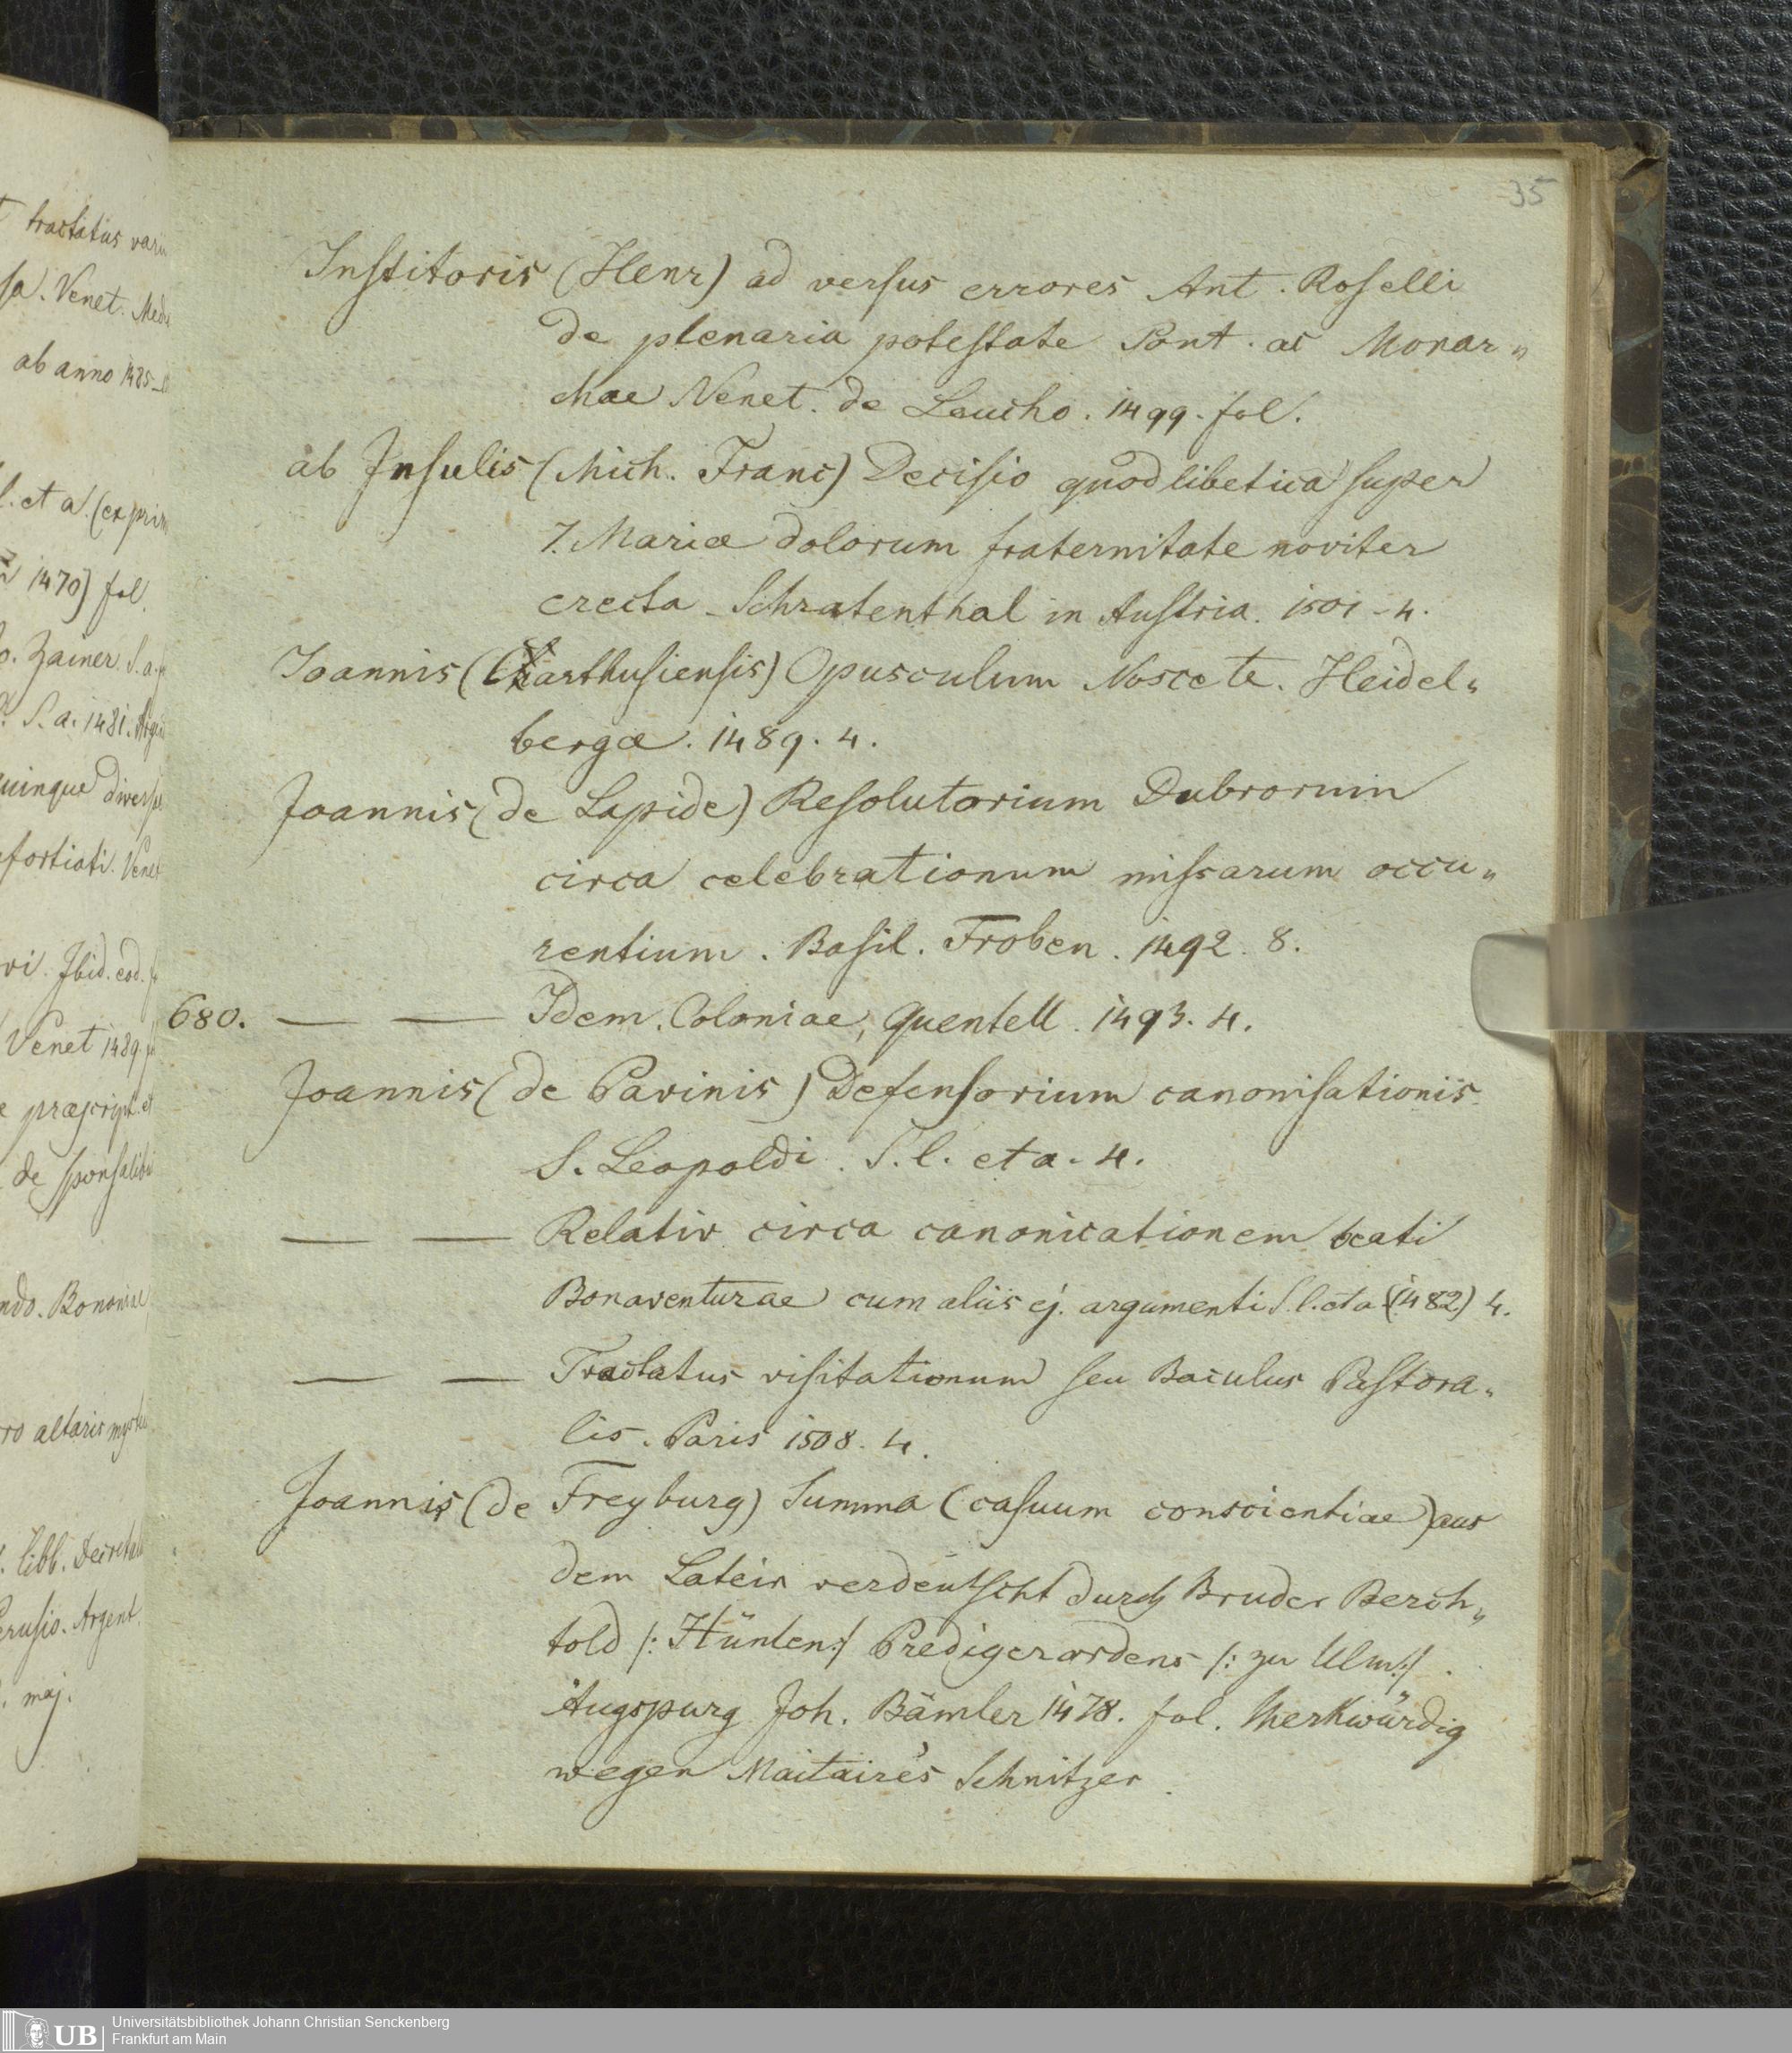 35
Institoris (Henr) ad versus errores Ant. Roselli
de plenaria potestate Pont. ac Monar„
chae Venet. de Leucho. 1499. fol.
ab Insulis (Mich. Franc) Decisio quodlibetica super
7. Mariæ dolorum fraternitate noviter
erecta - Schratenthal in Austria. 1501 - 4.
Joannis (Carthusiensis) Opusculum Nosce te. Heidel„
bergæ. 1489. 4.
Joannis (de Lapide) Resolutorium Dubrorum
circa celebrationum missarum occu„
rentium. Basil. Froben. 1492. 8.
680. — — Idem. Coloniae, Quentell. 1493. 4.
Joannis (de Pavinis) Defensorium canonisationis
S. Leopoldi. S. l. et a. 4.
— — Relatio circa canonicationem beati
Bonaventurae cum aliis ej. argumenti S. l. et a (1482) 4.
— — Tractatus visitationum seu Baculus Pastora„
lis. Paris 1508. 4.
Joannis (de Freyburg) Summa (casuum conscientiae) aus
dem Latein verdeutscht durch Bruder Berch„
told /: Hünlen :/ Predigerordens /: zu Ulm :/.
Augspurg Joh. Bämler 1478. fol. Merkwürdig
wegen Maitaire's Schnitzer.
tractatus
Venet.
ab anno 1485
1470) fol.
Zainer S. a.
S. a. 1481.
fortiati. Venet
Ibid. eod.
Venet 1489
præscript. et
de
Bononiae
altaris
libb.
Argent.
maj.
UB
Universitätsbibliothek Johann Christian Senckenberg
Frankfurt am Main